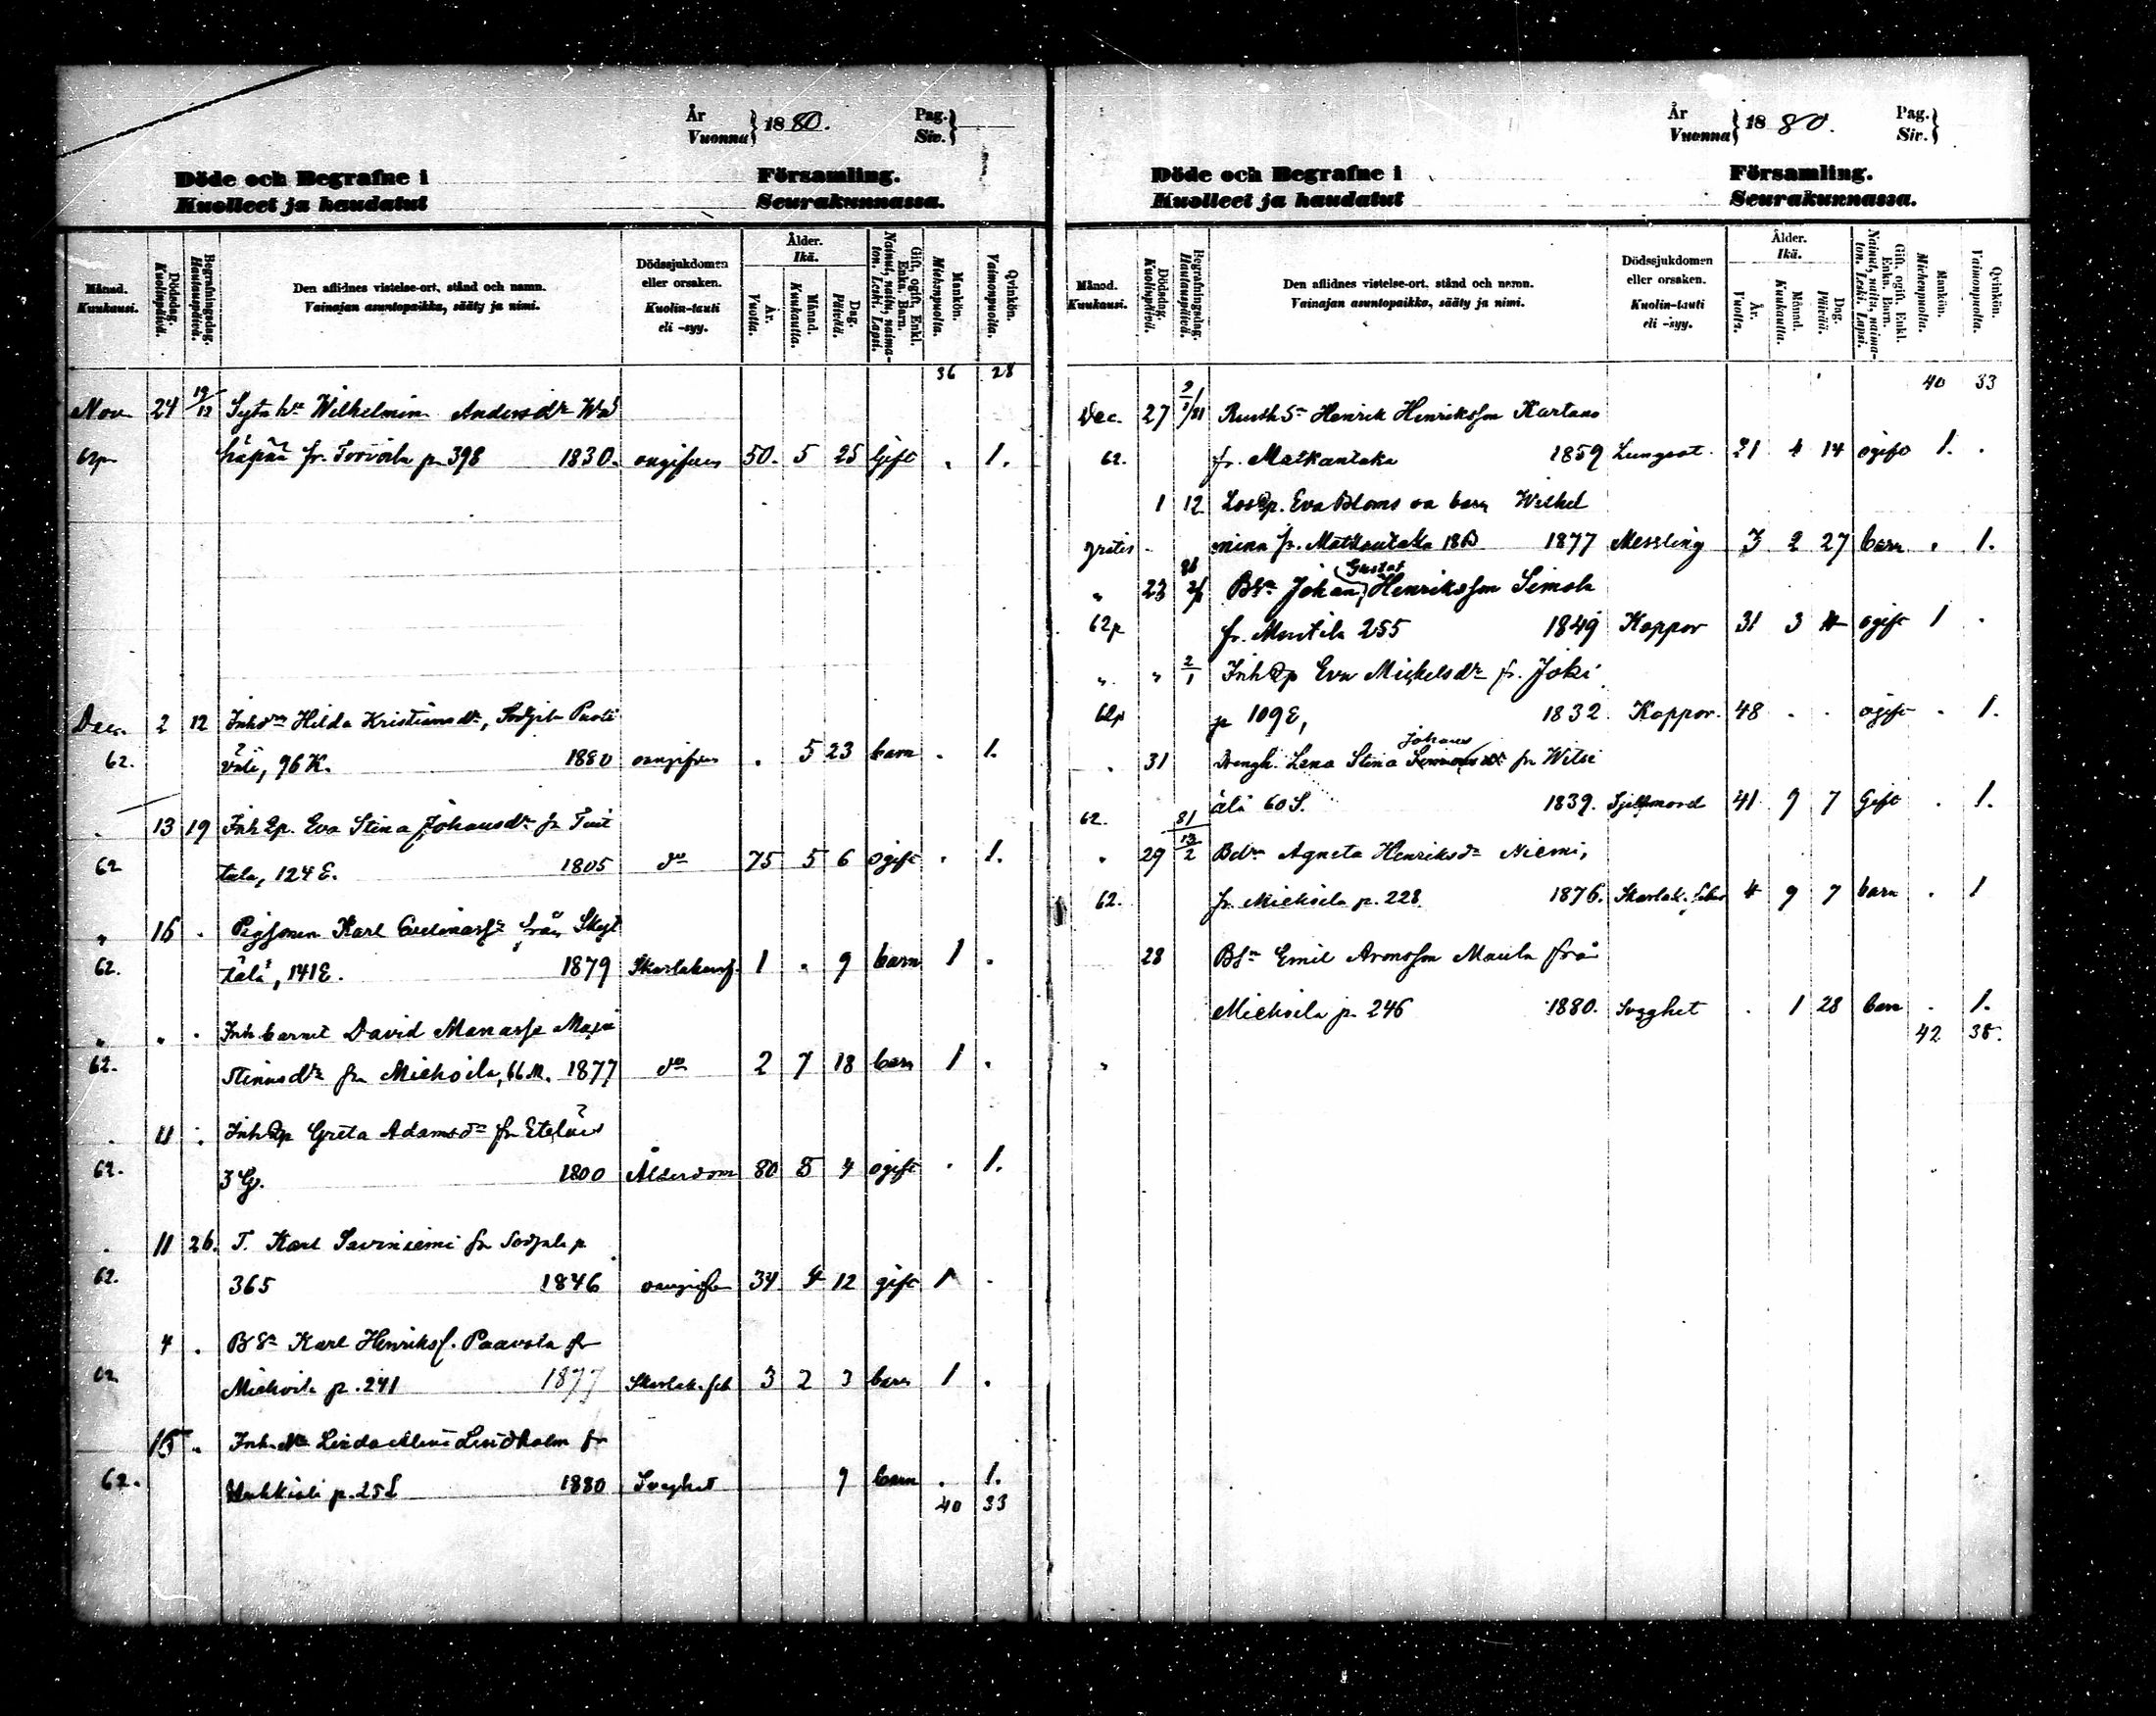 År
Vuonna } 1880.
Pag.
Siv. }
Döde och Begrafne i Församling.
Kuolleet ja haudatut Seurakunnassa.
Månad. Kuukausi.
Dödsdag. Kuolinpäivä.
Begrafningsdag. Hautauspäivä.
Den aflidnes vistelse-ort, stånd och namn.
Vainajan asuntopaikka, sääty ja nimi.
Dödssjukdomen eller orsaken.
Kuolin-tauti eli -syy.
Ålder. Ikä.
År. Vuotta.
Månad. Kuukautta.
Dag. Päivää.
Gift, ogift, Enkl. Enka, Barn.
Nainut, naitu, naimaton. Leski. Lapsi.
Mankön. Miehenpuolta.
Qvinkön. Vaimonpuolta.
36 28
Nov 24 19/12 Wilhelmin Andersdr
fr. p 398 1830. ongifven 50. 5 25 Gift . 1.
Dec. 2 12 Hilda Kristiansdr,
62. 96 K. 1880 oangifven . 5 23 barn . 1.
13 19 Inh Qp. Eva Stina Johansdr fr
62 tala, 124 E. 1805 do 75 5 6 ogift . 1.
" 16 . Karl från
62. 141 E. 1879 1 . 9 barn 1 .
" " . Inh barnet David Manasse Maja
62. Stinasdr fr Miehoila, 66 M. 1877 do 2 7 18 barn 1 .
. 11 . Inh Qp Greta Adamsdr fr
62. 3 G. 1800 Ålderdom 80 5 4 ogift . 1.
. 11 26. T. Karl Saviniemi fr p
62. 365 1846 oangifven 34 4 12 gift 1 .
4 . BSn Karl Henrikss. Paavola fr
62 Miehoila p. 241 1877 Skarlak. feb 3 2 3 barn 1 .
15 . Lindholm fr
62. p. 25 L 1880 Svaghet 9 barn . 1.
40 33
År
Vuonna } 1880.
Pag.
Siv. }
Döde och Begrafne i Församling.
Kuolleet ja haudatut Seurakunnassa.
Månad. Kuukausi.
Dödsdag. Kuolinpäivä.
Begrafningsdag. Hautauspäivä.
Den aflidnes vistelse-ort, stånd och namn.
Vainajan asuntopaikka, sääty ja nimi.
Dödssjukdomen eller orsaken.
Kuolin-tauti eli -syy.
Ålder. Ikä.
År. Vuotta.
Månad. Kuukautta.
Dag. Päivää.
Gift, ogift, Enkl. Enka, Barn.
Nainut, naitu, naimaton. Leski. Lapsi.
Mankön. Miehenpuolta.
Qvinkön. Vaimonpuolta.
40 33
Dec. 27 Henrik Henriksson Kartano
62. fr. Matkantaka 1859 Lungsot. 21 4 14 ogift 1. .
1 12 Eva Bloms oa barn Wilhel
gratis mina fr. Matkantaka 18 B 1877 Messling 3 2 27 barn . 1.
" 23 BSn Johan Gustaf Henriksson Simola
62p fr. 255 1849 Koppor 31 3 ogift 1 .
" " 2/1 Inh Qp Eva Mickelsdr fr. Joki
62p p 109 E, 1832. Koppor. 48 . . ogift . 1.
. 31 Lena Stina Johans dr fr Witsi
62. älä 60 S. 1839. Sjelfmord 41 9 7 Gift . 1.
. 29 81 13/2 Bdr Agneta Henriksdr Niemi,
62. fr. Miehoila p. 228 1876. Skarlak. feber 4 9 7 barn . 1
28 BSn Emil Aronsson Maula från
Miehoila p. 246 1880. Svaghet . 1 28 barn . 1.
42 38.